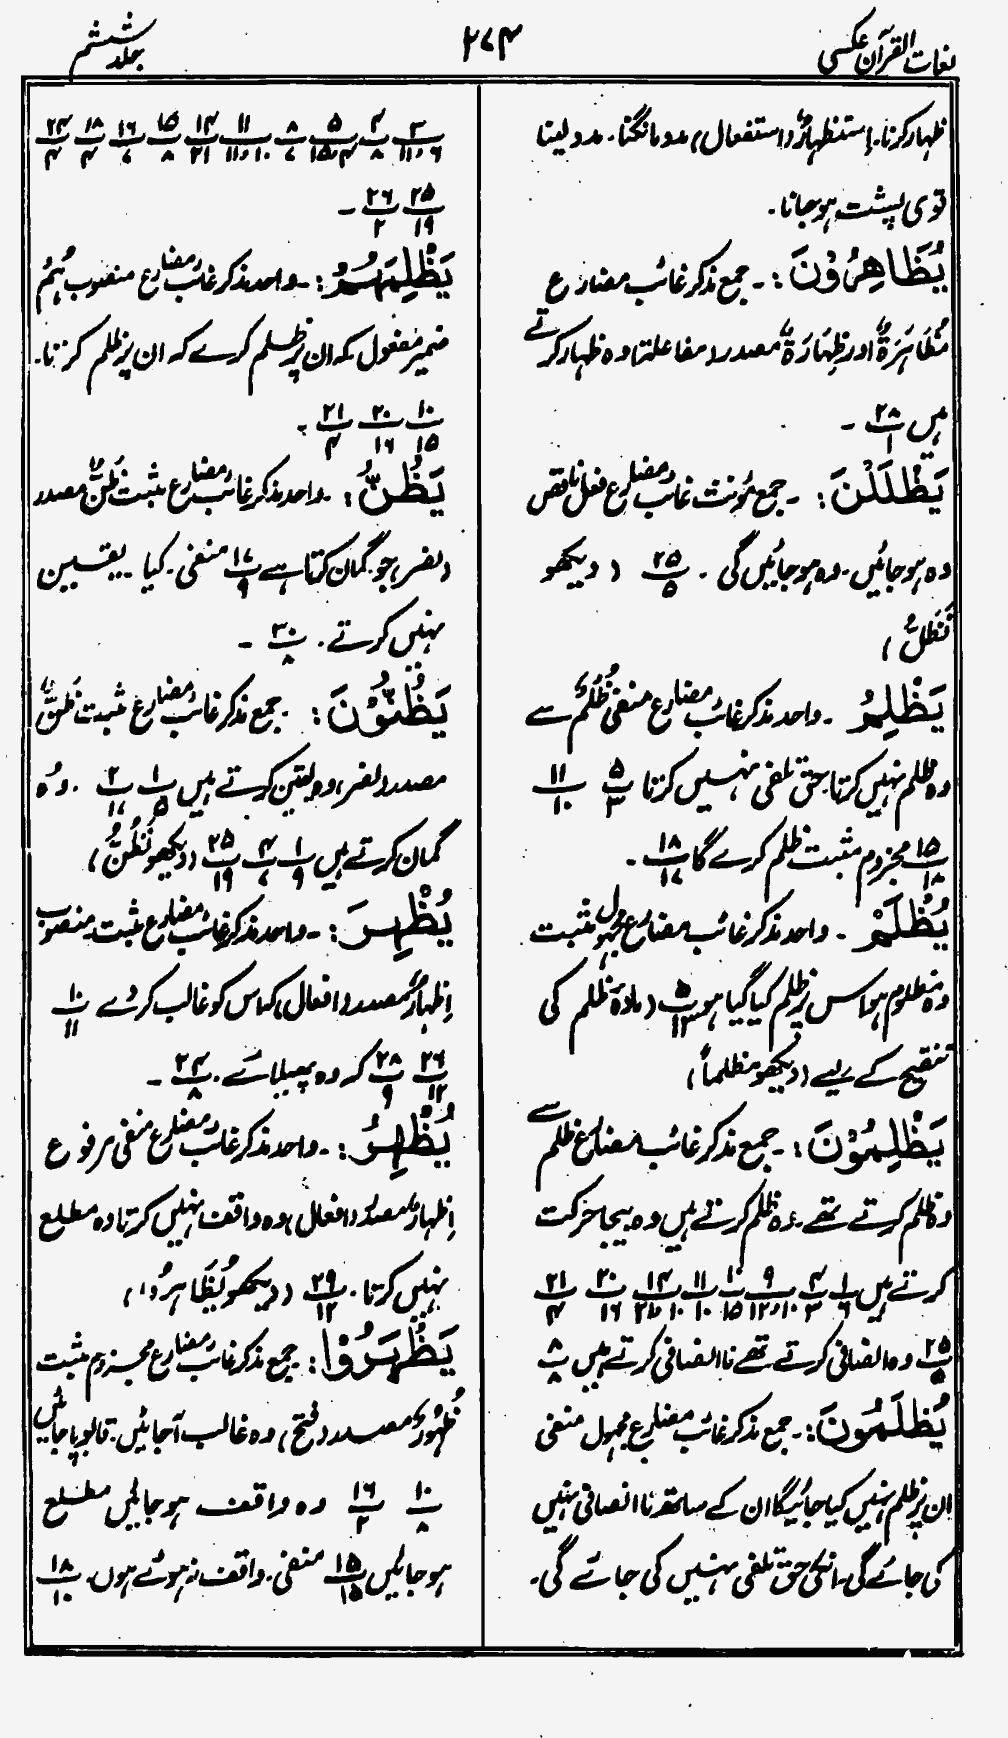 لغات القرآن عکسی
۲۷۴
جلد ششم
ظہار کرنا۔ اِسْتِظْہَارٌ (استفعال) مدد مانگنا۔ مدد لینا
قوی پشت ہو جانا۔
يُظَاهِرُوْنَ :۔ جمع مذکر غائب مضارع
مُظَاہَرَۃٌ اور ظِہَارَۃٌ مصدر (مفاعلۃ) وہ ظہار کرتے
ہیں ۲۸/۱ ۔
يَظْلَلْنَ :۔ جمع مؤنث غائب مضارع فعل ناقص
وہ ہو جائیں۔ وہ ہو جائیں گی ۔ ۲۵/۵ (دیکھو
تَظَلُّ)
يَظْلِمُ ۔ واحد مذکر غائب مضارع منفی ظُلْمٌ سے
وہ ظلم نہیں کرتا۔ حق تلفی نہیں کرتا ۵/۳ ۱۱/۱۰
۱۵/۱۸ مجزوم مثبت ظلم کرے گا ۱۸/۱۷ ۔
يُظْلَمْ ۔ واحد مذکر غائب مضارع مجہول مثبت
وہ مظلوم ہو اس پر ظلم کیا گیا ہو ۵/۱۳ (مادۂ ظلم کی
تنقیح کے لیے (دیکھو مظلماً)
يَظْلِمُوْنَ :۔ جمع مذکر غائب مضارع ظلم سے
وہ ظلم کرتے تھے۔ وہ ظلم کرتے ہیں وہ بیجا حرکت
کرتے ہیں ۱/۶ ۴/۳ ۹/۱۰،۱۲ ۱۰/۱۵ ۱۱/۱۰ ۱۴/۲۱ ۲۰/۱۶ ۲۱/۴
۲۵/۵ وہ انصافی کرتے تھے نا انصافی کرتے ہیں ۸/۸
يُظْلَمُونَ :۔ جمع مذکر غائب مضارع مجہول منفی
ان پر ظلم نہیں کیا جائیگا ان کے ساتھ نا انصافی نہیں
کی جائے گی۔ انکی حق تلفی نہیں کی جائے گی۔
۳/۶،۱۱ ۴/۸ ۵/۴،۱۵ ۸/۷ ۱۱/۱۰،۱۱ ۱۴/۲۱ ۱۵/۸ ۱۶/۷ ۱۸/۴ ۲۴/۴
۲۵/۱۹ ۲۶/۲ ۔
يَظْلِمَهُمُ :۔ واحد مذکر غائب مضارع منصوب ہُمُ
ضمیر مفعول کہ ان پر ظلم کرے کہ ان پر ظلم کرنا۔
۱۰/۱۵ ۲۰/۱۶ ۲۱/۴ ۔
يَظُنُّ :۔ واحد مذکر غائب مضارع مثبت ظَنٌّ مصدر
(نصر) جو گمان کرتا ہے ۱۷/۹ منفی۔ کیا یقین
نہیں کرتے ۔ ۳۰/۸ ۔
يَظُنُّوْنَ :۔ جمع مذکر غائب مضارع مثبت ظَنٌّ
مصدر (نصر) وہ یقین کرتے ہیں ۱/۵ ۲/۱۷ ۔ وہ
گمان کرتے ہیں ۱/۹ ۴/۷ ۲۵/۱۹ (دیکھو تَظُنُّ)
يُظْهِرَ :۔ واحد مذکر غائب مضارع مثبت منصوب
اِظْہَارٌ مصدر (افعال) کہ اس کو غالب کر دے ۱۰/۱۱
۲۶/۱۲ ۲۸/۹ کہ وہ پھیلائے ۔ ۲۴/۸ ۔
يُظْهِرُ :۔ واحد مذکر غائب مضارع منفی مرفوع
اِظْہَارٌ مصدر (افعال) وہ واقف نہیں کرتا وہ مطلع
نہیں کرتا ۔ ۲۹/۱۲ (دیکھو یُظَاہِرُوا)
يَظْهَرُوْا :۔ جمع مذکر غائب مضارع مجزوم مثبت
ظُہُوْرٌ مصدر (فتح) وہ غالب آجائیں۔ قابو پاجائیں
۱۰/۸ ۱۶/۲ وہ واقف ہو جائیں مطلع
ہو جائیں ۱۵/۱۵ منفی۔ واقف نہ ہوئے ہوں۔ ۱۸/۱۰